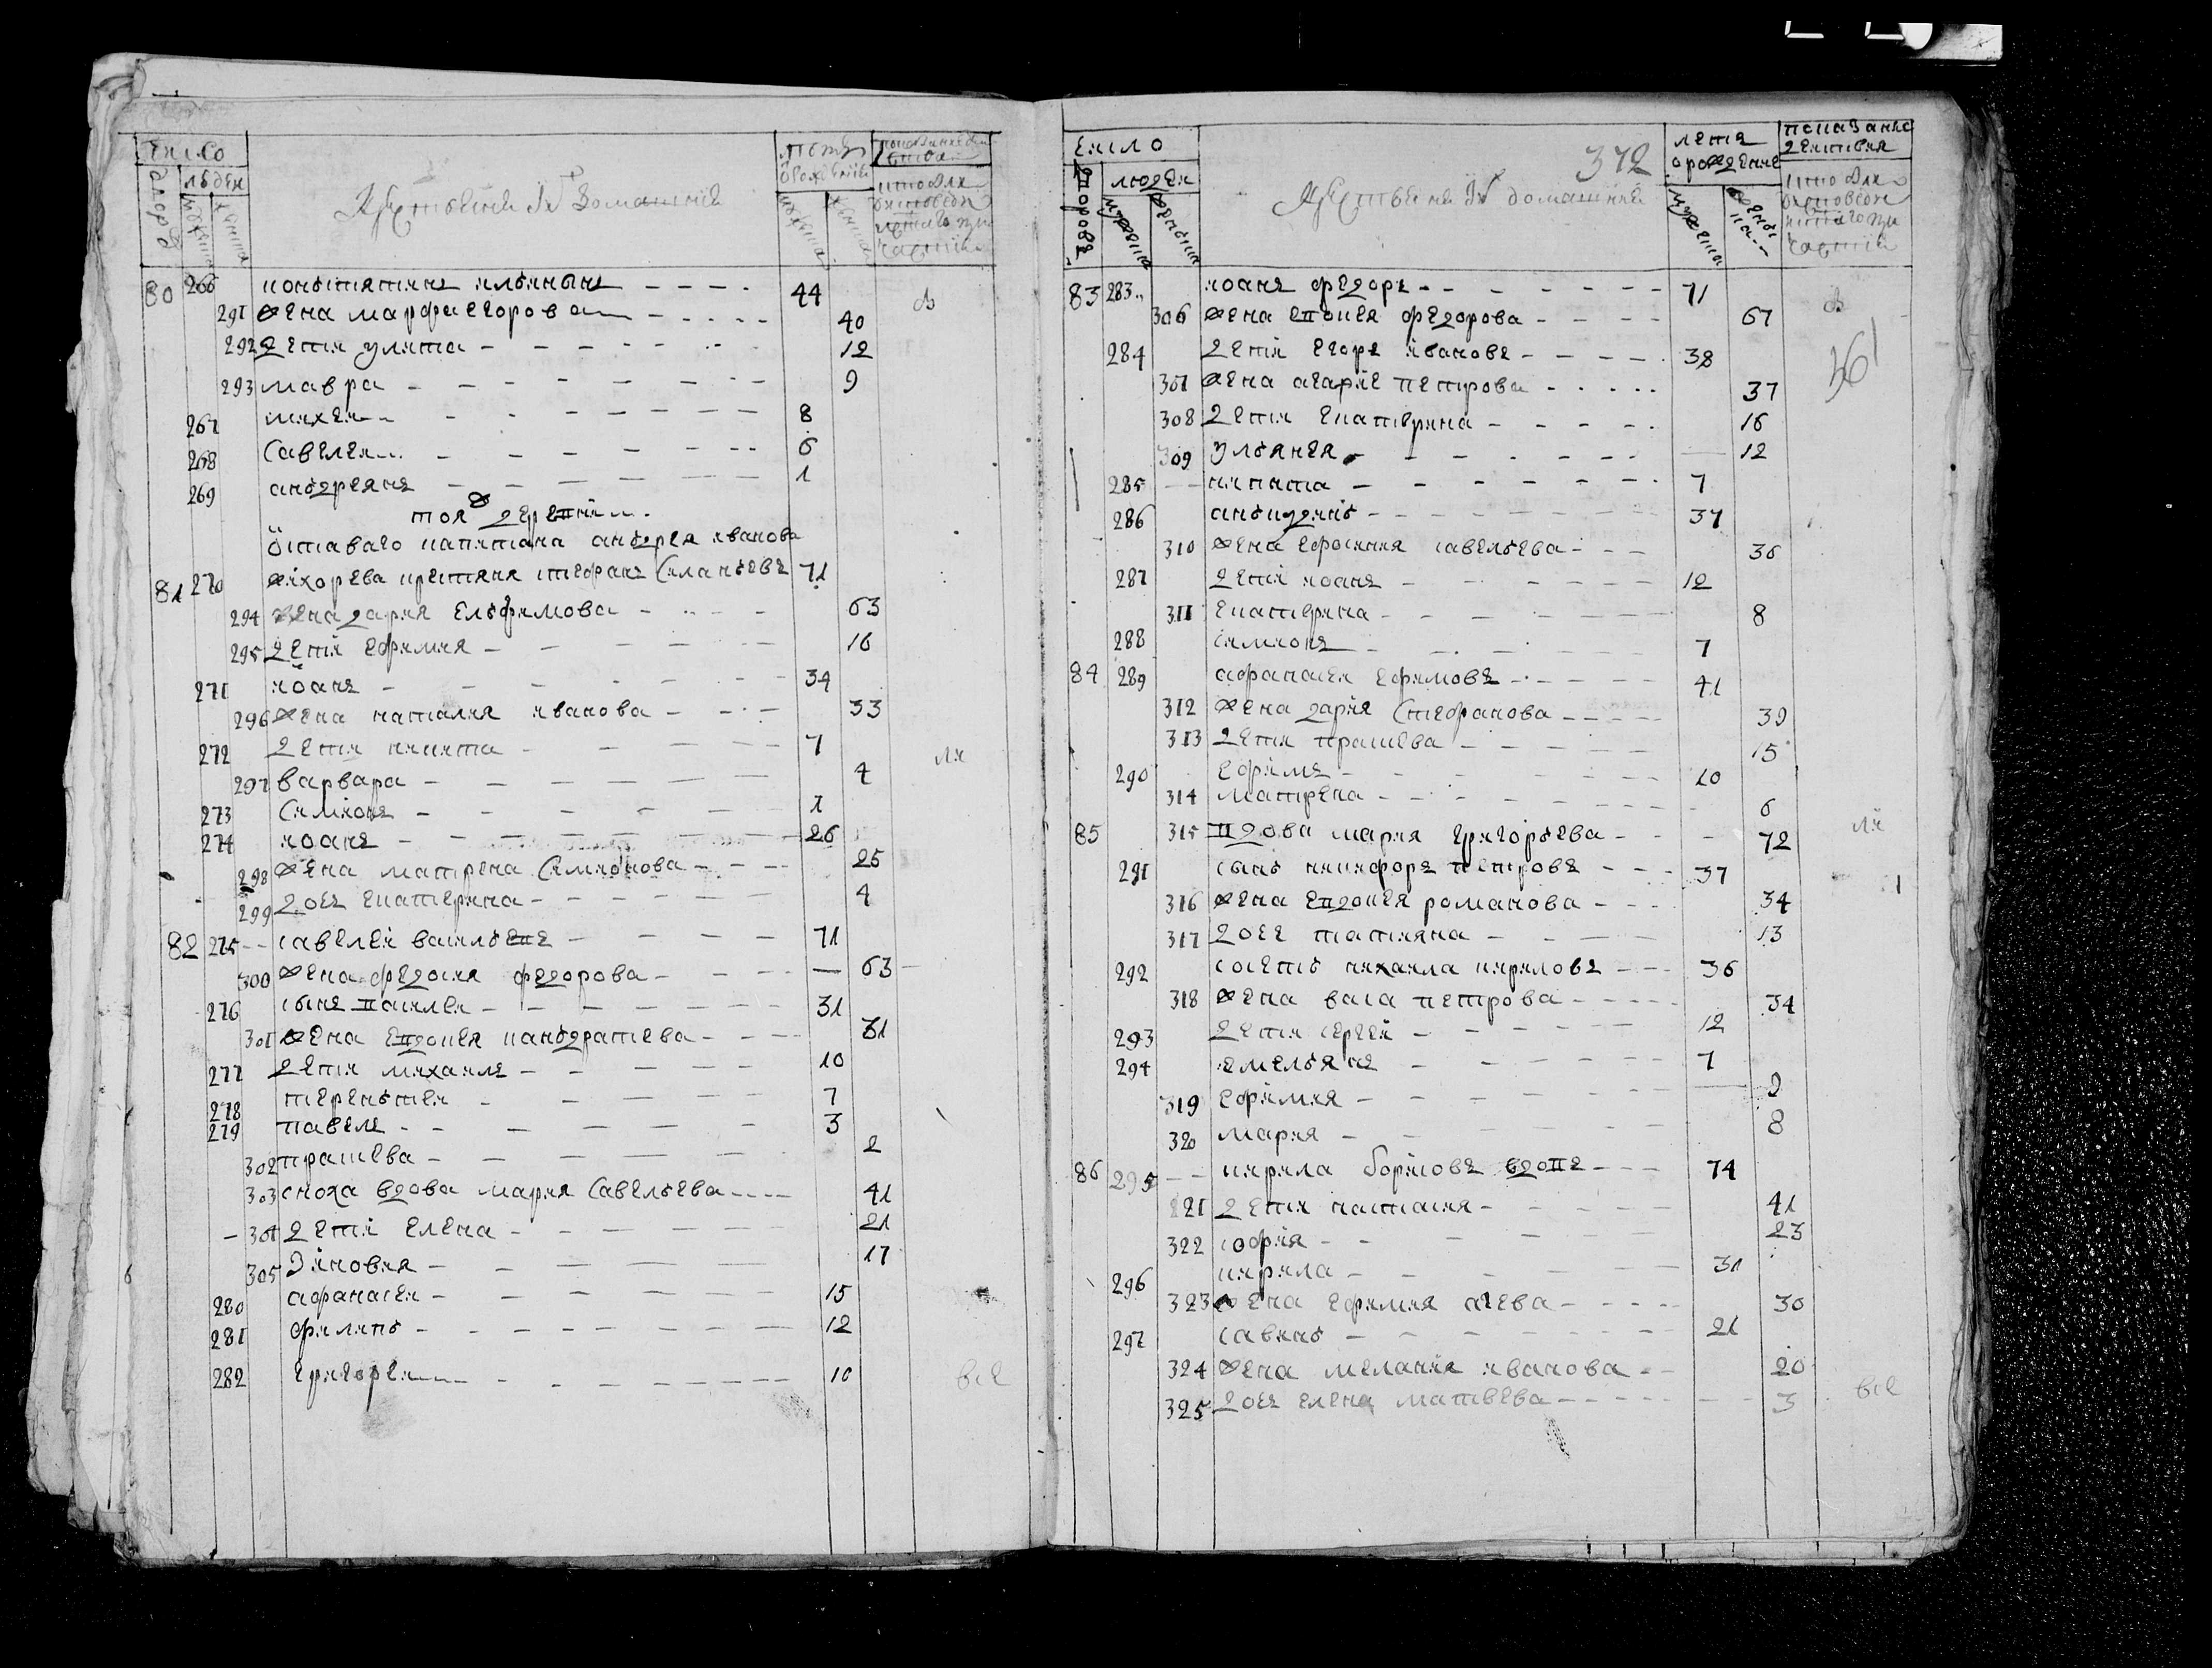 число
людей
Крестьяне и их домашние
80 266 констянтинъ ильинынъ 44
291 жена марфа егорова 40
292 дети улита 12
293 мавра 9
267 михеи 8
268 савелеи 6
269 андреянъ 1
тояж деревни
отставаго капитана андрея иванова
81 270 крестяня стефанъ силантьевъ 71
294 жена дария елфимова 63
295 дети ефимия 16
271 иоанъ 34
296 жена наталия иванова 33
272 дети никита 7
297 варвара 4
273 симионъ 1
274 иоанъ 26
298 жена матрена симионова 25
299 дочь екатерина 4
82 275 савелеи васильевъ 71
300 жена федосия федорова 63
276 сынъ василеи 31
301 жена евдокея кандратева 31
277 дети михаилъ 10
278 терентеи 7
279 павелъ 3
302 прасева 2
303 сноха вдова мария савельева 41
304 дети елена 21
305 зиновия 17
280 афанасеи 15
281 филипъ 12
282 григореи 10
все
число
дворовъ людеи
372
Крестьяня и их домашния
лета
о рождение
показание
83 283 иоанъ федоръ 71
306 жена евдокея федорова 67
284 дети егоръ ивановъ 38
361
307 жена агарие петрова 37
308 дети екатерина 16
309 ульянея 12
285 никита 7
286 анкидинъ 37
310 жена ефосиния савельева 36
287 дети иоанъ 12
311 екатерина 8
288 симионъ 7
84 289 афанасеи ефимовъ 41
312 жена дария стефанова 39
313 дети прасева 15
290 ефимъ 10
314 матрена 6
85 315 вдова мария григорьева 72
291 сынъ никифоръ петровъ 37
316 жена евдокея романова 34
317 дочь татияна 13
292 соседъ михаила кириловъ 36
318 жена васа петрова 34
293 дети сергеи 12
294 емельянъ 7
319 ефимия 9
320 мария 8
86 295 кирила борисовъ вдовъ 74
321 дети настасия 41
322 софия 23
296 кирила 31
323 жена ефимия агева 30
297 савинъ 21
324 жена мелания иванова 20
325 дочь елена матвева 3
все